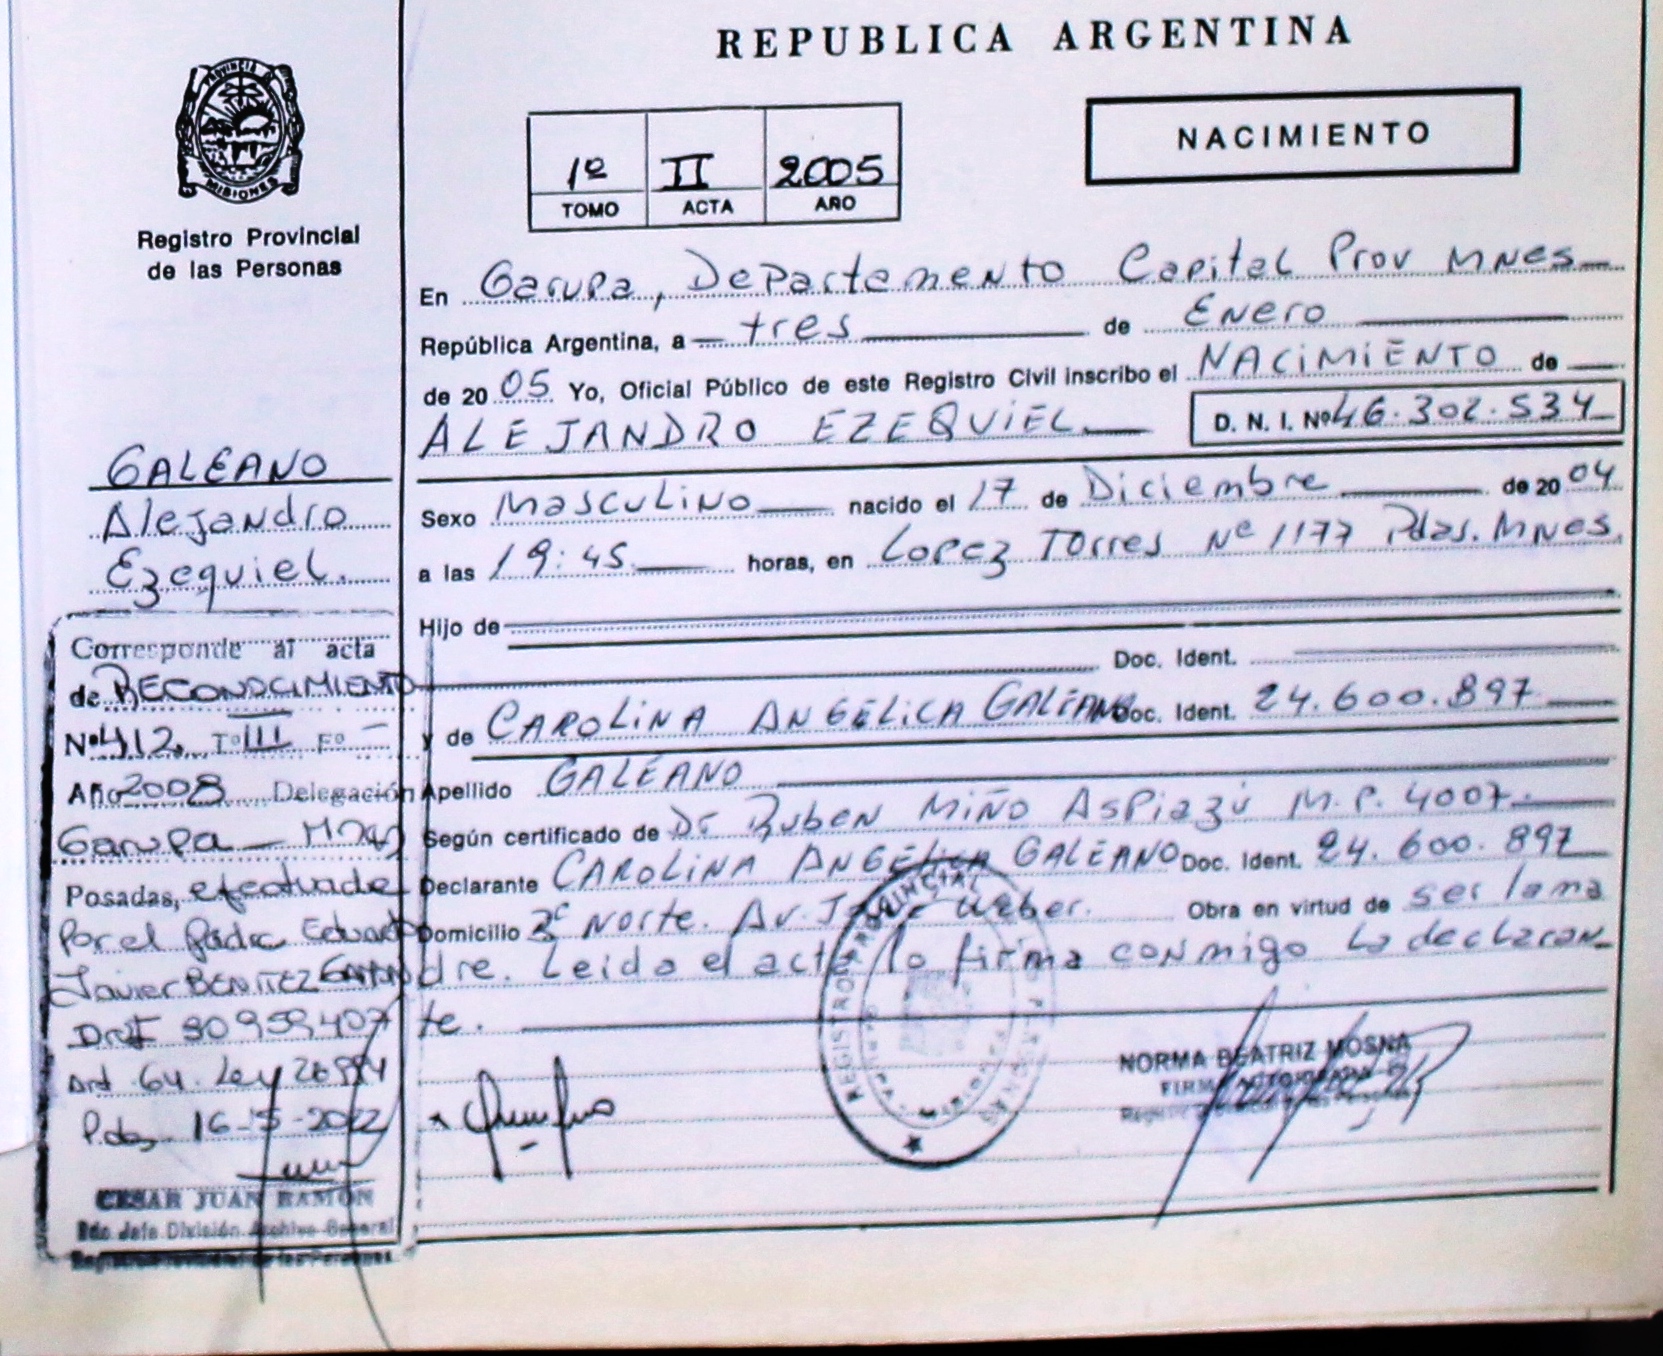 REPUBLICA ARGENTINA
PROVINCIA D MISIONES
Registro Provincial
de las Personas
1º II 2005
TOMO ACTA AÑO
NACIMIENTO
En Garupa, Departamento Capital Prov MNES
República Argentina, a tres de Enero
de 2005 Yo, Oficial Público de este Registro Civil inscribo el NACIMIENTO de
ALEJANDRO EZEQUIEL. D. N. I. Nº 46.302.534
GALEANO
Alejandro
Ezequiel.
Sexo Masculino nacido el 17 de Diciembre de 2004
a las 19:45 horas, en Lopez Torres Nº 1177 Pdas. MNES.
Hijo de
Doc. Ident.
y de CAROLINA ANGÉLICA GALEANO Doc. Ident. 24.600.897
Apellido GALEANO
Según certificado de Dr Ruben Miño Aspiazú M.P. 4007.
Declarante CAROLINA ANGÉLICA GALEANO Doc. Ident. 24.600.897
Domicilio 3º Norte. Av. Weber. Obra en virtud de ser la ma
dre. Leida el acta lo firma conmigo la declaran
te.
Corresponde al acta
de RECONOCIMIENTO
Nº 412 Tº III Fº -
Año 2008 Delegación
Garupa
Posadas, efectuada
Por el padre Eduardo
Javier BENITEZ
30959407
Art 64. Ley 26994
Pdas 16-5-2022
CESAR JUAN RAMON
Jefe División Archivo General
Registro Provincial de las Personas
REGISTRO PROVINCIAL
NORMA BEATRIZ MOSNA